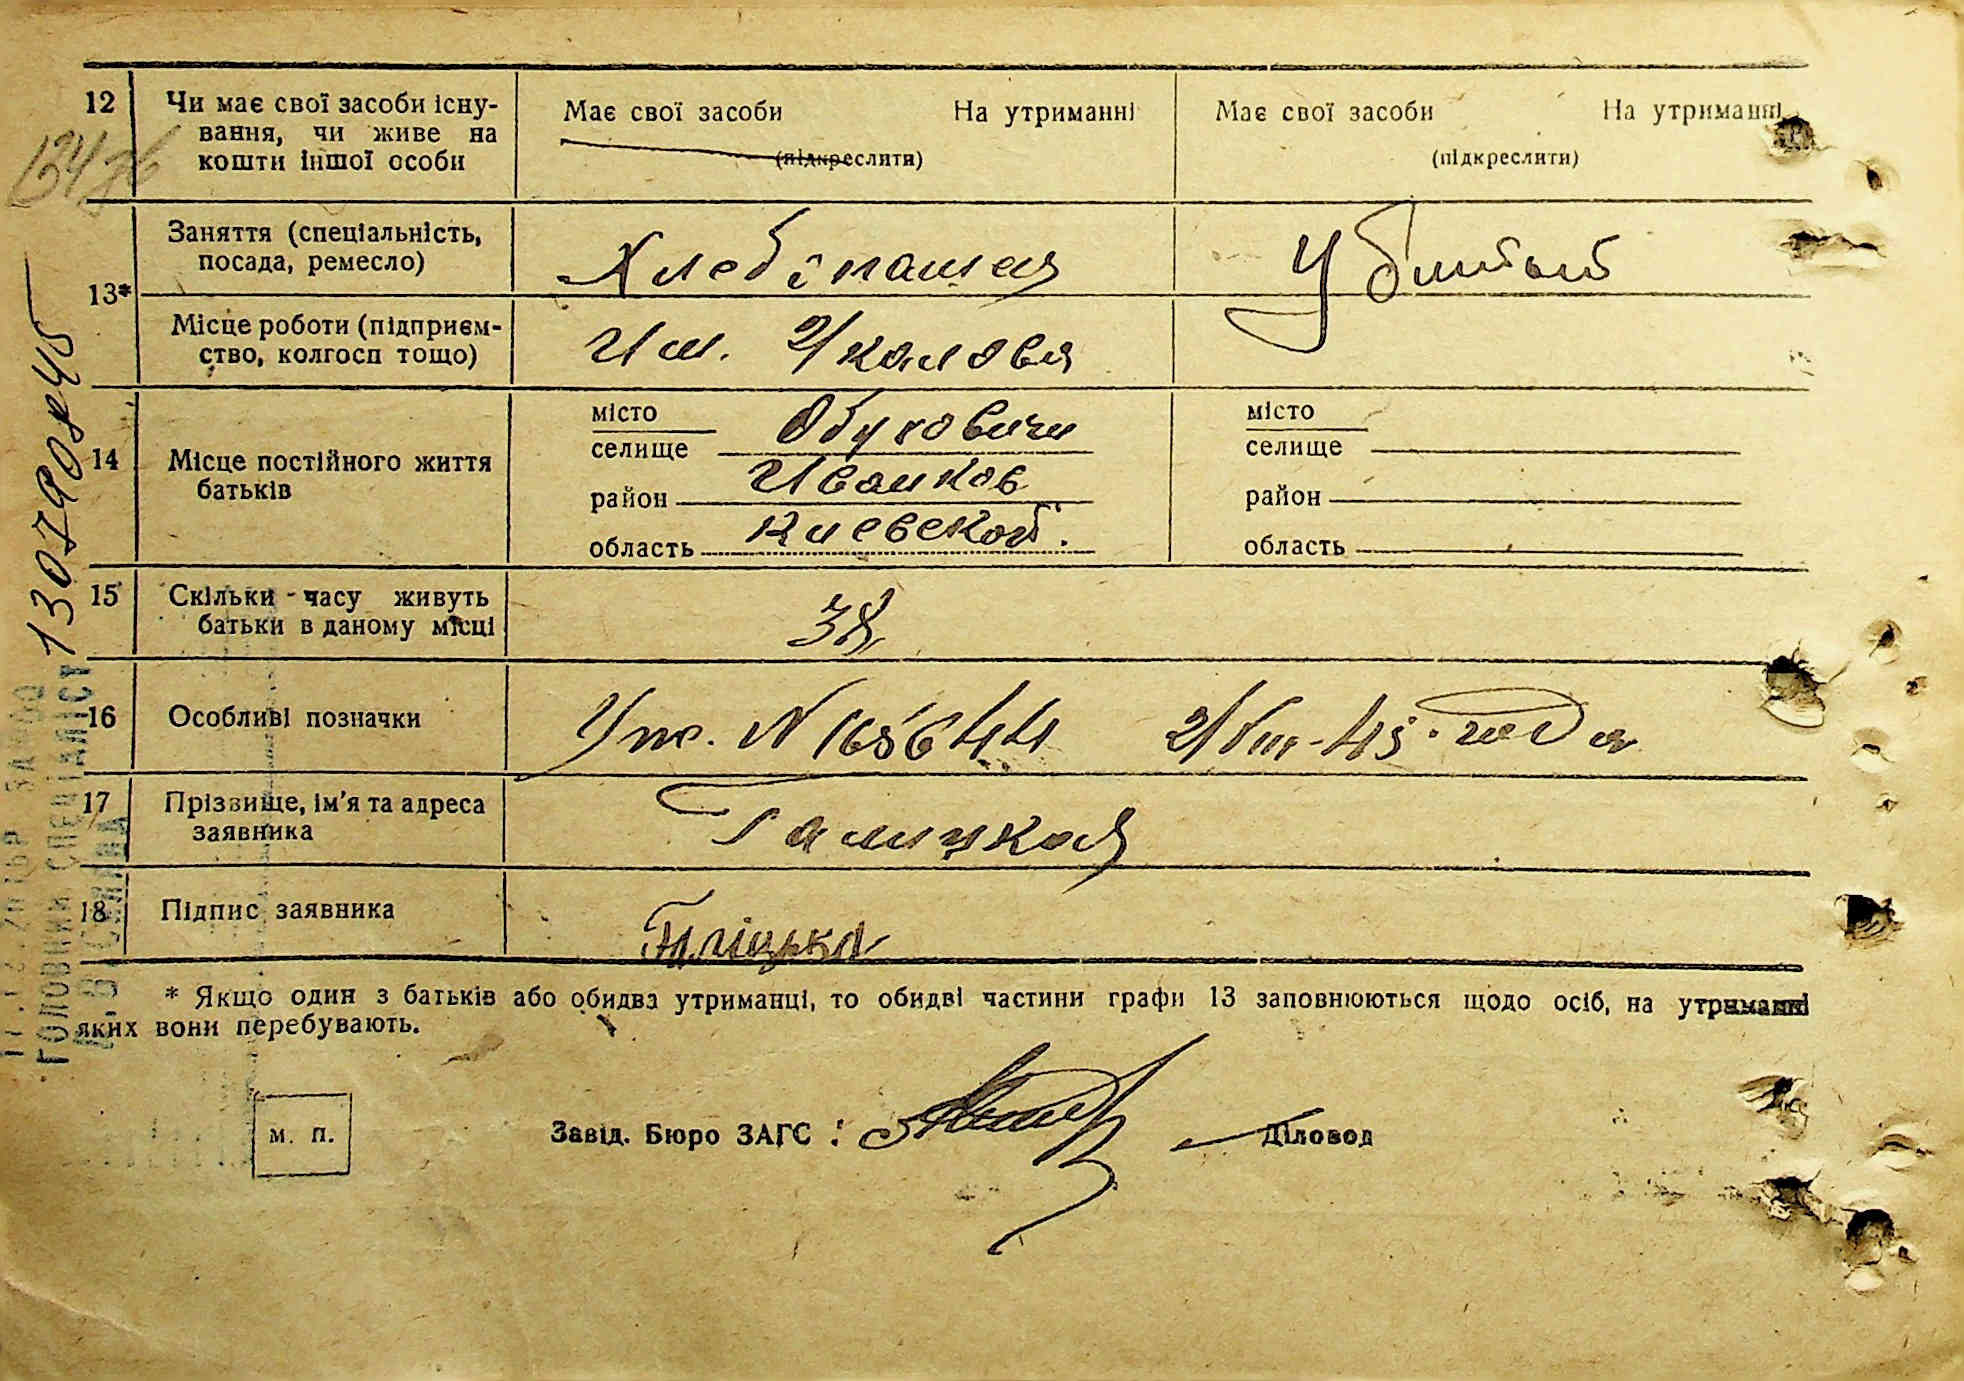 12
Чи має свої засоби існу-
вання, чи живе на
кошти іншої особи
Має свої засоби На утриманні
(підкреслити)
Має свої засоби На утриманні
(підкреслити)
13*
Заняття (спеціальність,
посада, ремесло)
Убитый
Місце роботи (підприєм-
ство, колгосп тощо)
Им. Чкалова
14
Місце постійного життя
батьків
місто
селище Обуховичи
район Иванков
область Киевской.
місто
селище
район
область
15
Скільки часу живуть
батьки в даному місці
38
16
Особливі позначки
17
Прізвище, ім'я та адреса
заявника
Галицкая
18
Підпис заявника
Галіцька
* Якщо один з батьків або обидва утриманці, то обидві частини графи 13 заповнюються щодо осіб, на утриманні
яких вони перебувають.
м. п.
Завід. Бюро ЗАГС :
Діловод
ГОЛОВНИЙ СПЕЦІАЛІСТ